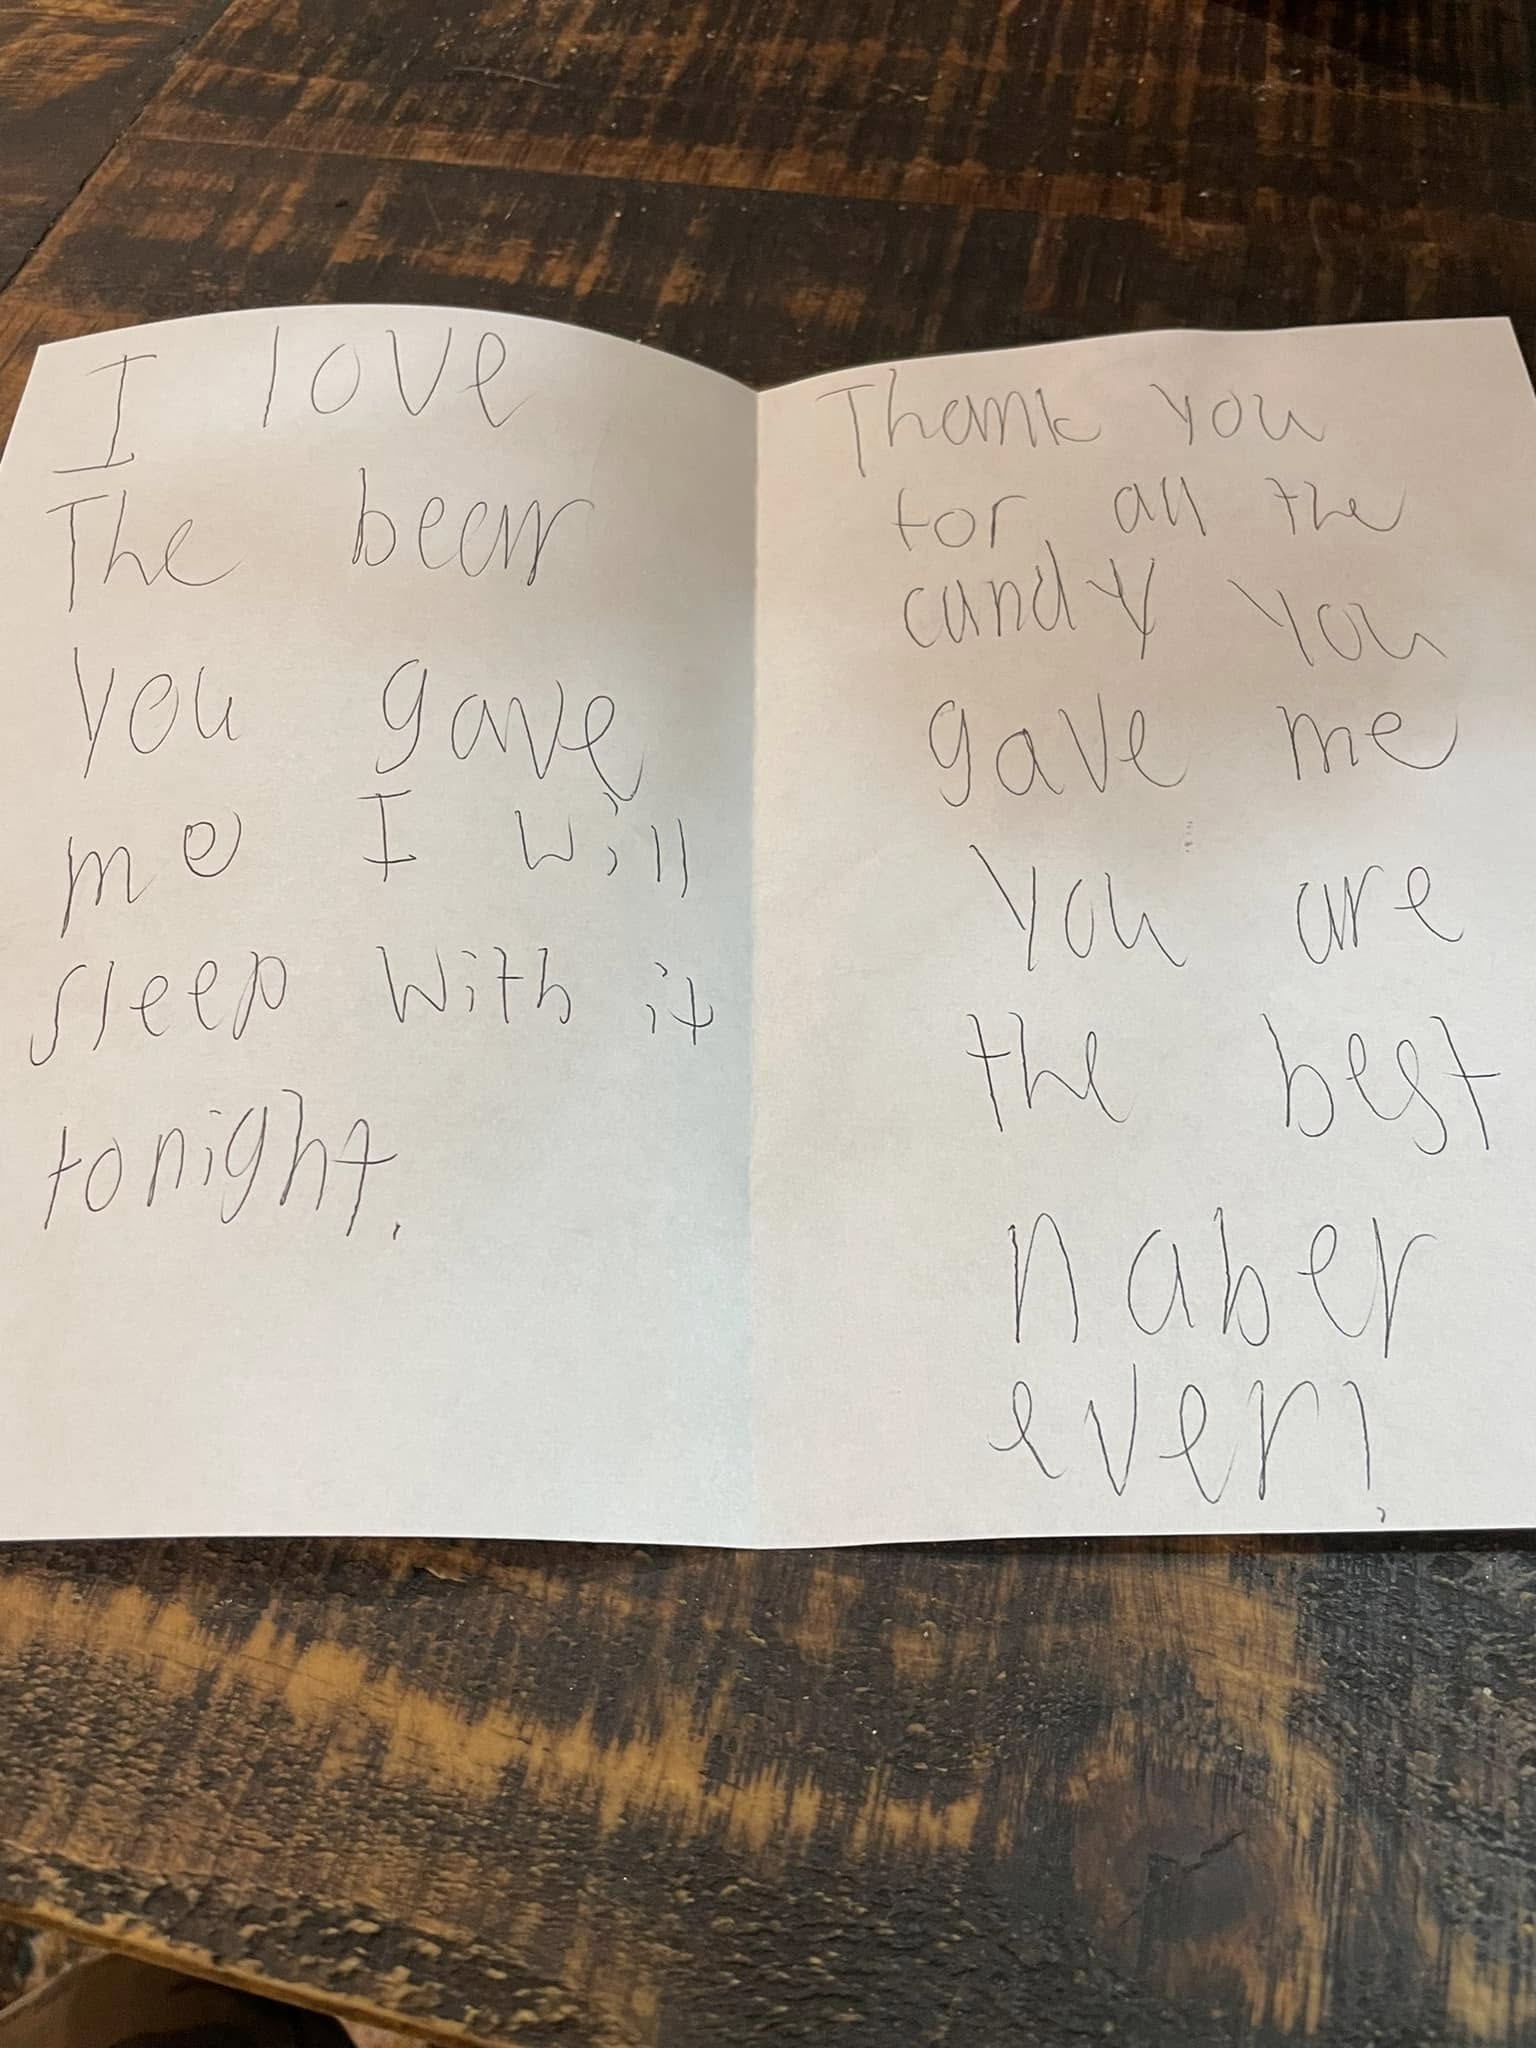 I love
The bear
you gave
me I will
sleep with it
tonight.
Thank you
for all the
candy you
gave me
you are
the best
naber
ever!